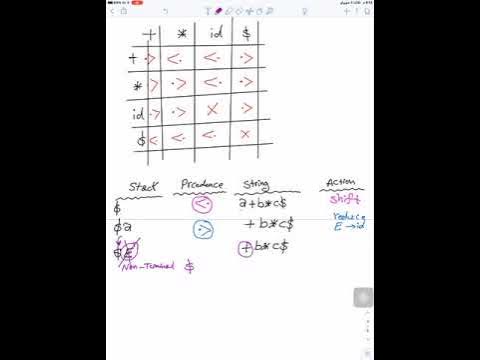 + * id $
+ ·> <· <· ·>
* ·> <· <· ·>
id ·> ·> X ·>
$ <· <· <· X
Stack Precedence String Action
$ <· a+b*c$ shift
$a ·> +b*c$ reduce E→id
$E +b*c$
Non-Terminal $